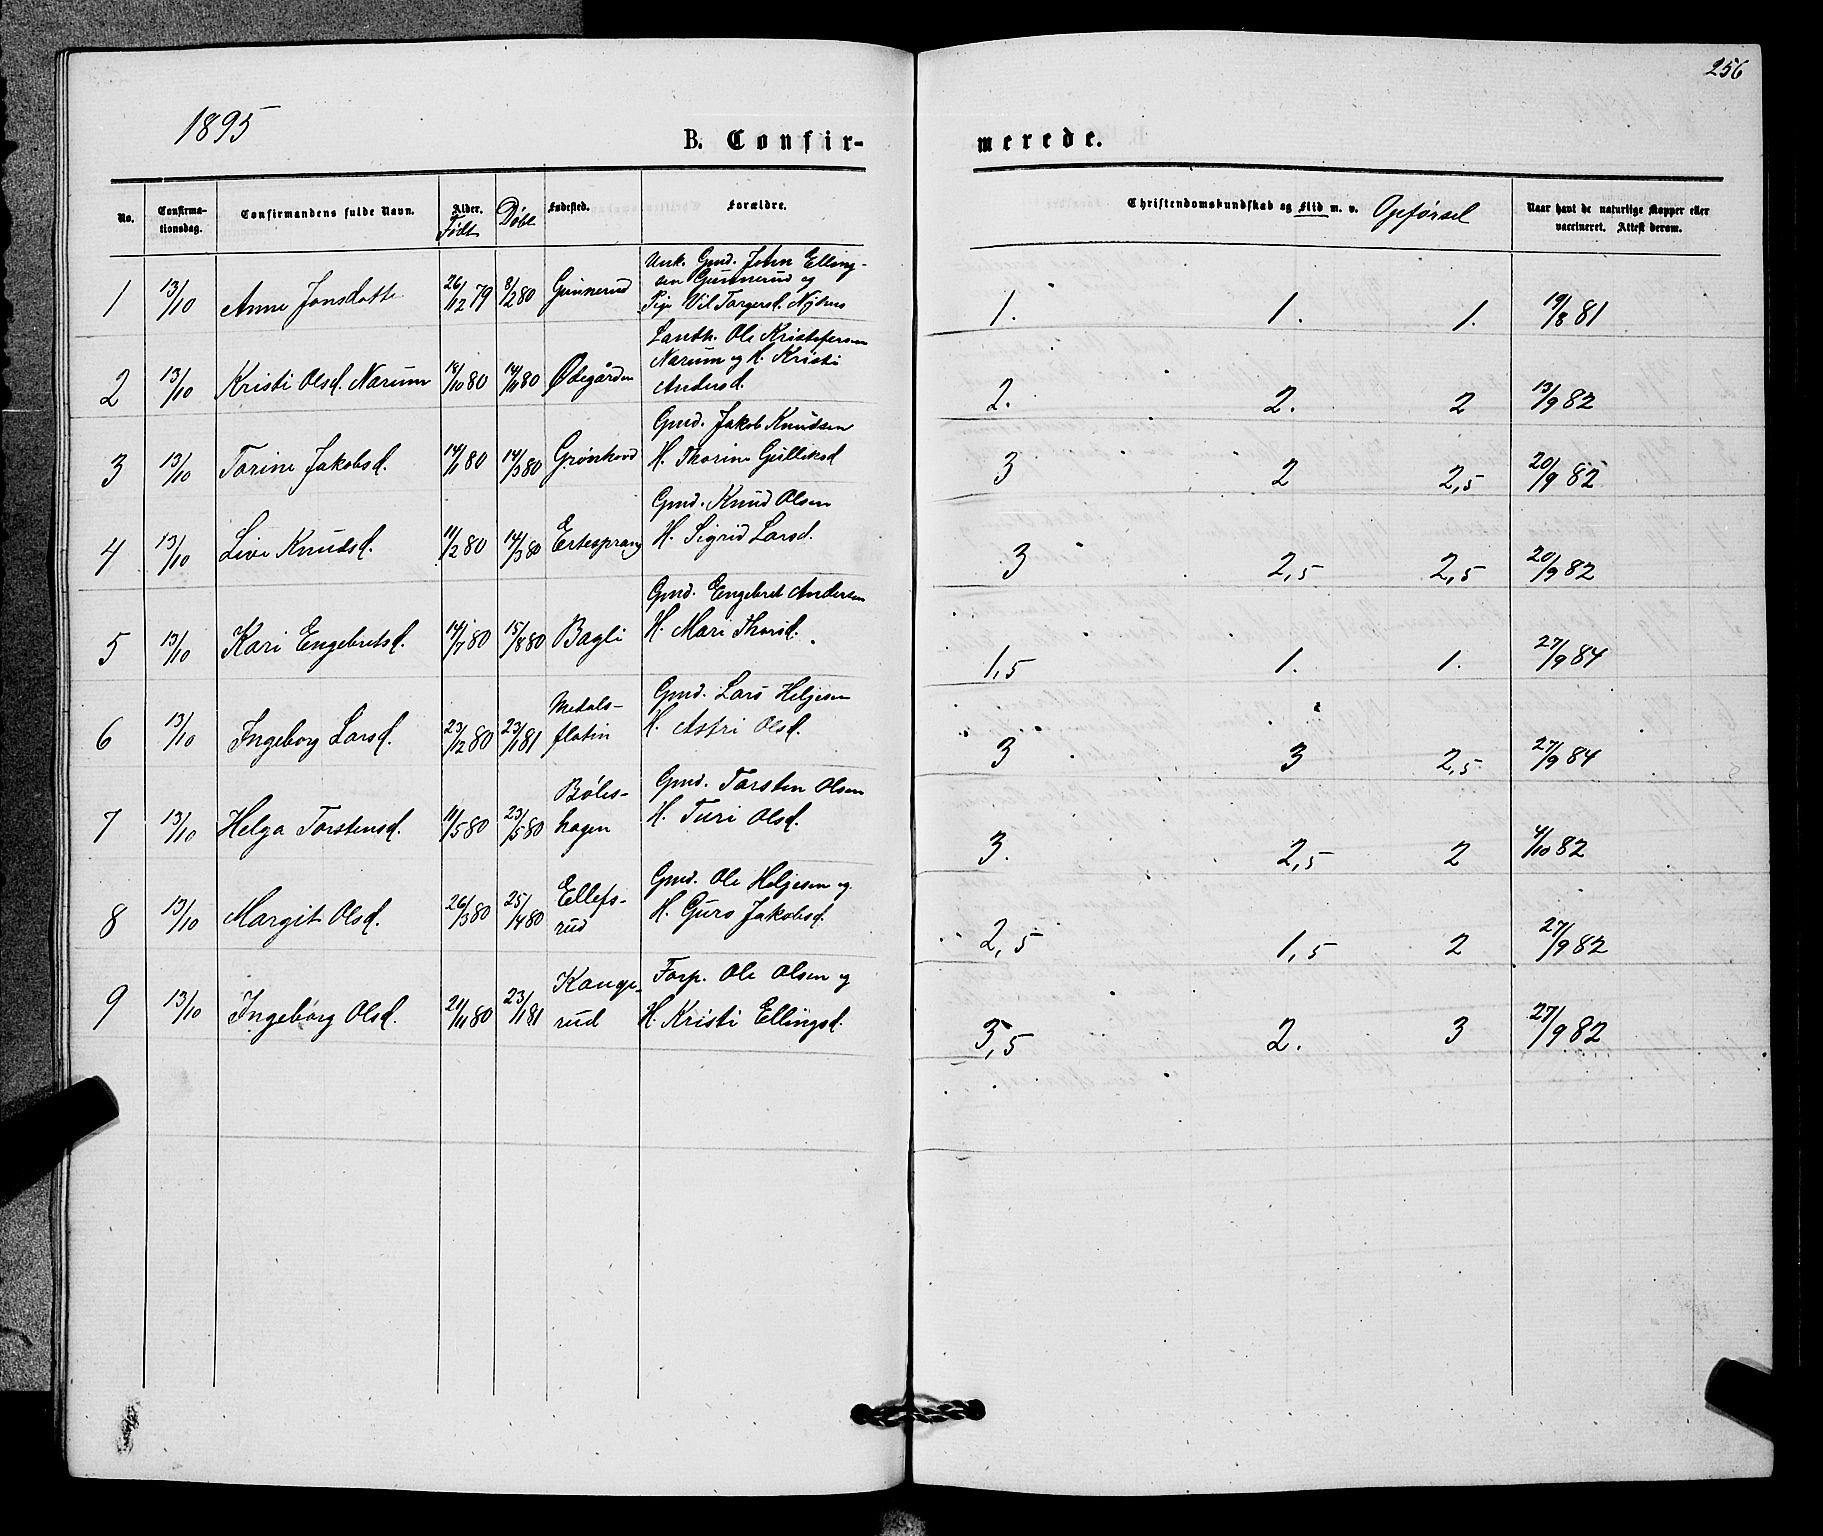 256
1895
B. Confir-
merede.
No. Confirma-tionsdag. Confirmandens fulde Navn. Alder. Født Døbt Fødested. Forældre. Christendomskundskab og Flid m. v. Opførsel Naar havt de naturlige Kopper eller vaccineret. Attest derom.
Unk. Gmd. John Elling-
sen Gunnerud og
1 13/10 Anne Jonsdatte 26/12 79 8/2 80 Gunnerud Pige Vil Torgersd. Nyhus 1. 1. 1. 19/8 81
Landh. Ole Kristofersen
Narum og H. Kristi
2 13/10 Kristi Olsd. Narum 18/10 80 14/11 80 Ødegården Andersd. 2. 2. 2 13/9 82
Gmd. Jakob Knudsen
3 13/10 Torine Jakobsd. 14/1 80 14/3 80 Grønhovd H. Thorine Gulliksd 3 2 2,5 20/9 82
Gmd. Knud Olsen
4 13/10 Livi Knudsd. 11/2 80 14/3 80 Ertesprang H. Sigrid Larsd. 3 2,5 2,5 20/9 82
Gmd. Engebret Andersen
5 13/10 Kari Engebretsd. 14/7 80 15/8 80 Bagli H. Mari Thorsd. 1,5 1. 1. 27/9 84
Medals- Gmd. Lars Helgesen
6 13/10 Ingeborg Larsd. 23/12 80 23/1 81 flatin H. Astri Olsd. 3 3 2,5 27/9 84
Bøles- Gmd. Torsten Olsen
7 13/10 Helga Torstensd. 11/5 80 23/5 80 hagen H. Turi Olsd. 3. 2,5 2 4/10 82
Ellefs- Gmd. Ole Helgesen og
8 13/10 Margit Olsd. 26/3 80 25/4 80 rud H. Guro Jakobsd. 2,5 1,5 2 27/9 82
Kange- Forp. Ole Olsen og
9 13/10 Ingeborg Olsd. 21/11 80 23/1 81 rud H. Kristi Ellingsd. 3,5 2. 3 27/9 82